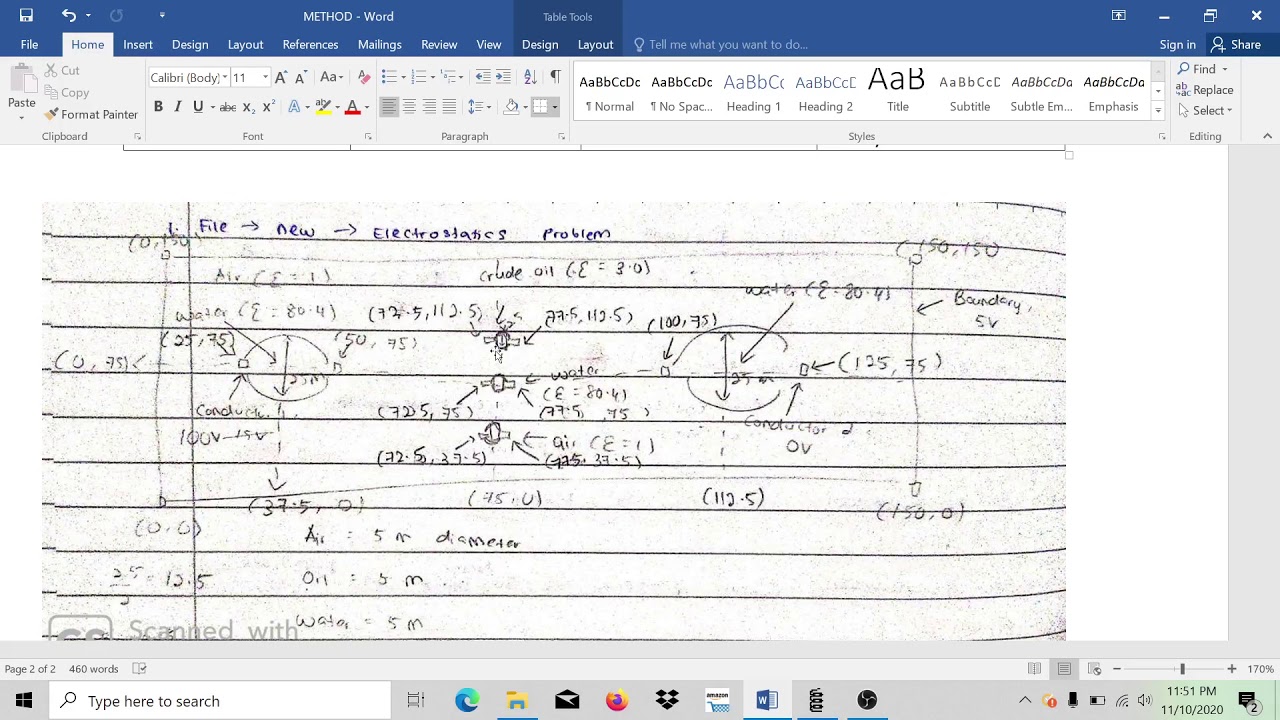 METHOD - Word
Table Tools
File Home Insert Design Layout References Mailings Review View Design Layout Tell me what you want to do... Sign in Share
Paste
Cut
Copy
Format Painter
Clipboard
Calibri (Body) 11
Font
Paragraph
AaBbCcDc AaBbCcDc AaBbCcE AaBbCcE AaB AaBbCcD AaBbCcDc AaBbCcDc
¶ Normal ¶ No Spac... Heading 1 Heading 2 Title Subtitle Subtle Em... Emphasis
Styles
Find
Replace
Select
Editing
1. File → new → Electrostatics Problem
(0,150) (150,150
Air (ε = 1) crude oil (ε = 3.0)
water (ε = 80.4)
water (ε = 80.4) (72.5,112.5) (77.5,112.5) (100,75)
Boundary,
5V
(25,75) (50,75)
(0,75) 25m water 25m (125,75)
(ε = 80.4)
(72.5,75) (77.5,75)
Conductor 2
100V 0V
air (ε = 1)
(72.5,37.5)
(37.5,0) (75,0) (112.5) (150,0)
(0,0)
Air = 5 m diameter
25/2 = 12.5 Oil = 5 m
water = 5m
CS Scanned with
Page 2 of 2 460 words 170%
Type here to search
amazon
11:51 PM
11/10/2020
2